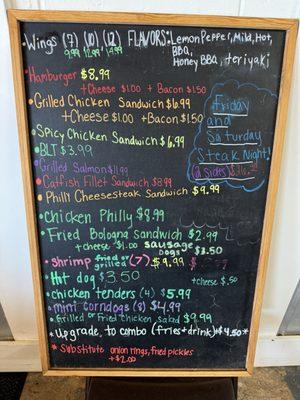 Wings (7) (10) (12) FLAVORS: Lemon Pepper, Mild, Hot,
9.99 12.99 14.99 BBQ,
Honey BBQ, teriyaki
Hamburger $8.99
+Cheese $1.00 + Bacon $1.50
Grilled Chicken Sandwich $6.99
+Cheese $1.00 +Bacon $1.50
Spicy Chicken Sandwich $6.99
BLT $3.99
Grilled Salmon $11.99
Catfish Fillet Sandwich $8.99
Philly Cheesesteak Sandwich $9.99
Friday
and
Saturday
Steak Night!
(2 sides)
Chicken Philly $8.99
Fried Bologna Sandwich $2.99
+cheese $1.00
Sausage
Dogs $3.50
Shrimp fried or
grilled (7) $9.99
Hot dog $3.50
+cheese $.50
chicken tenders (4) $5.99
mini corndogs (8) $4.99
Grilled or Fried chicken salad $9.99
*Upgrade to combo (fries+drink) +$4.50*
* Substitute onion rings, fried pickles
+$2.00